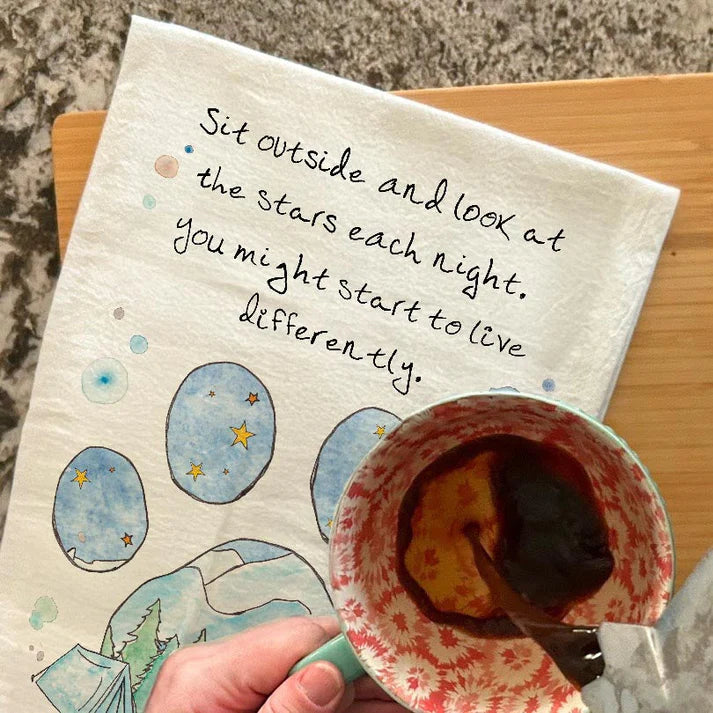 Sit outside and look at
the stars each night.
you might start to live
differently.